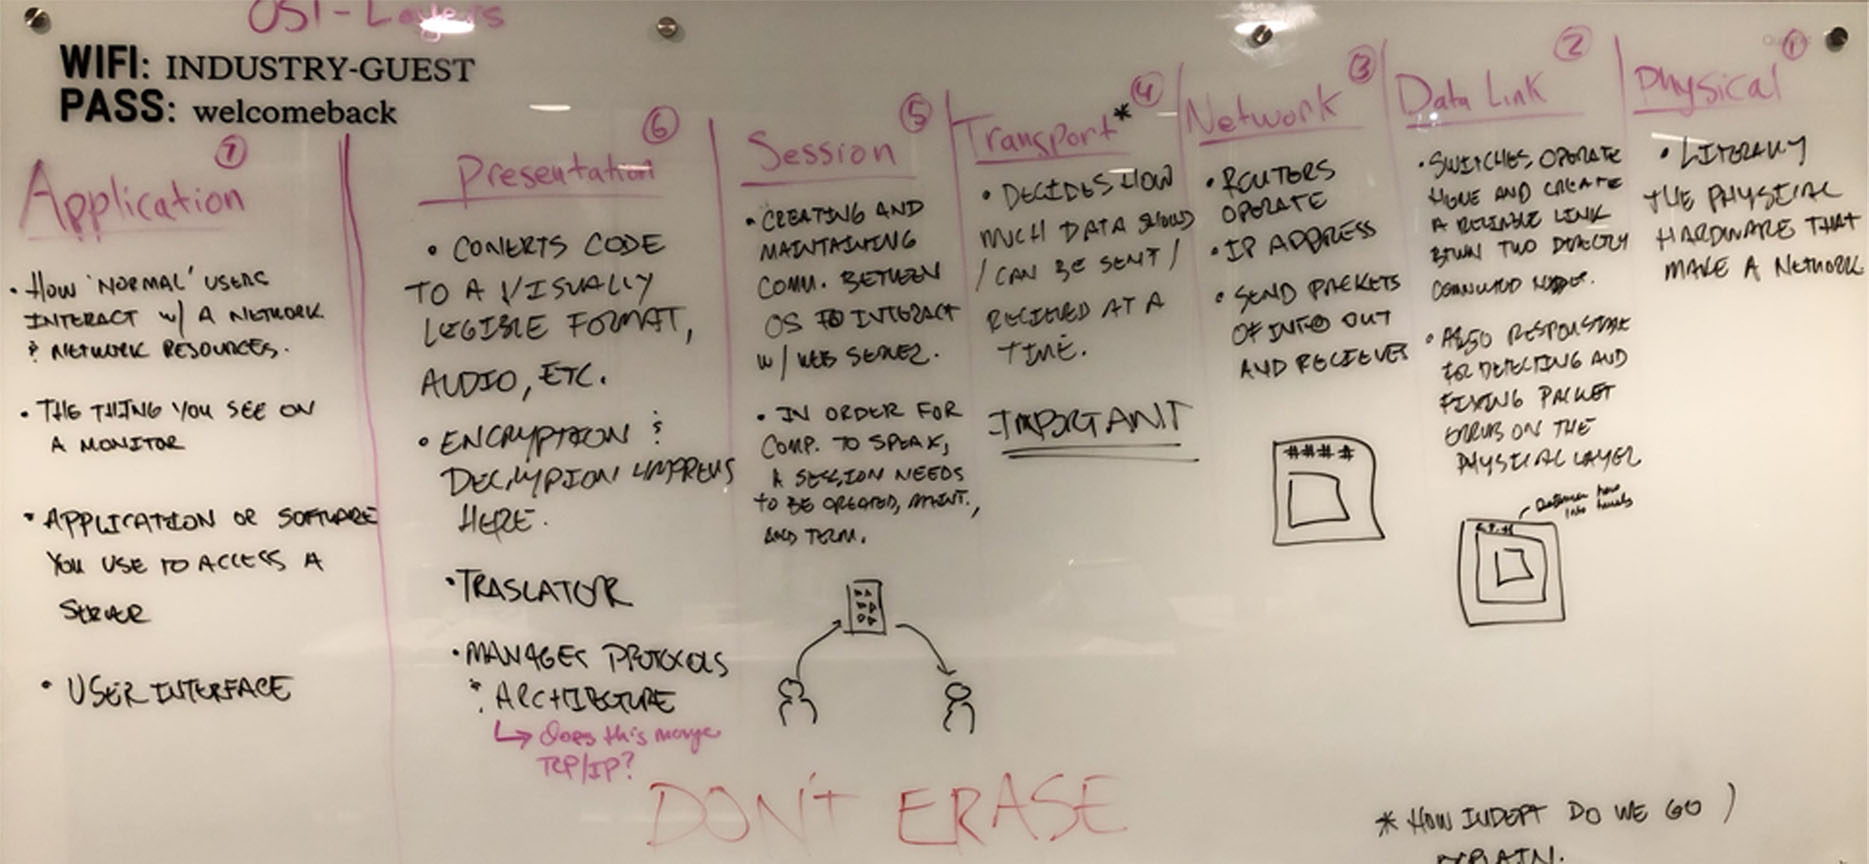 OSI-Layers
WIFI: INDUSTRY-GUEST
PASS: welcomeback
7
Application
• HOW 'NORMAL' USERS
INTERACT w/ A NETWORK
& NETWORK RESOURCES.
• THE THING YOU SEE ON
A MONITOR
• APPLICATION OR SOFTWARE
YOU USE TO ACCESS A
SERVER
• USER INTERFACE
6
Presentation
• CONERTS CODE
TO A VISUALLY
LEGIBLE FORMAT,
AUDIO, ETC.
• ENCRYPTION &
DECRYPION
HERE.
• TRASLATOR
• MANAGES PROTOCOLS
& ARCHITECTURE
↳ Does this
TCP/IP?
5
Session
• CREATING AND
MAINTAINING
COMM. BETWEEN
OS TO INTERACT
w/ WEB SERVER.
• IN ORDER FOR
COMP. TO SPEAK,
A SESSION NEEDS
TO BE CREATED, MAINT.,
AND TERM.
4
Transport*
• DECIDES HOW
MUCH DATA SHOULD
/ CAN BE SENT /
RECIEVED AT A
TIME.
IMPORTANT
3
Network
• ROUTERS
OPERATE
• IP ADDRESS
• SEND PACKETS
OF INFO OUT
AND RECIEVES
####
2
Data Link
• SWITCHES OPERATE
HERE AND CREATE
A RELIABLE LINK
BTWN TWO DIRECTLY
CONNECTED NODES.
• ALSO RESPONSIBLE
FOR DETECTING AND
FIXING PACKET
ERRORS ON THE
PHYSICAL LAYER
1
Physical
• LITERALLY
THE PHYSICAL
HARDWARE THAT
MAKE A NETWORK
DON'T ERASE
* HOW INDEPT DO WE GO )
EXPLAIN.